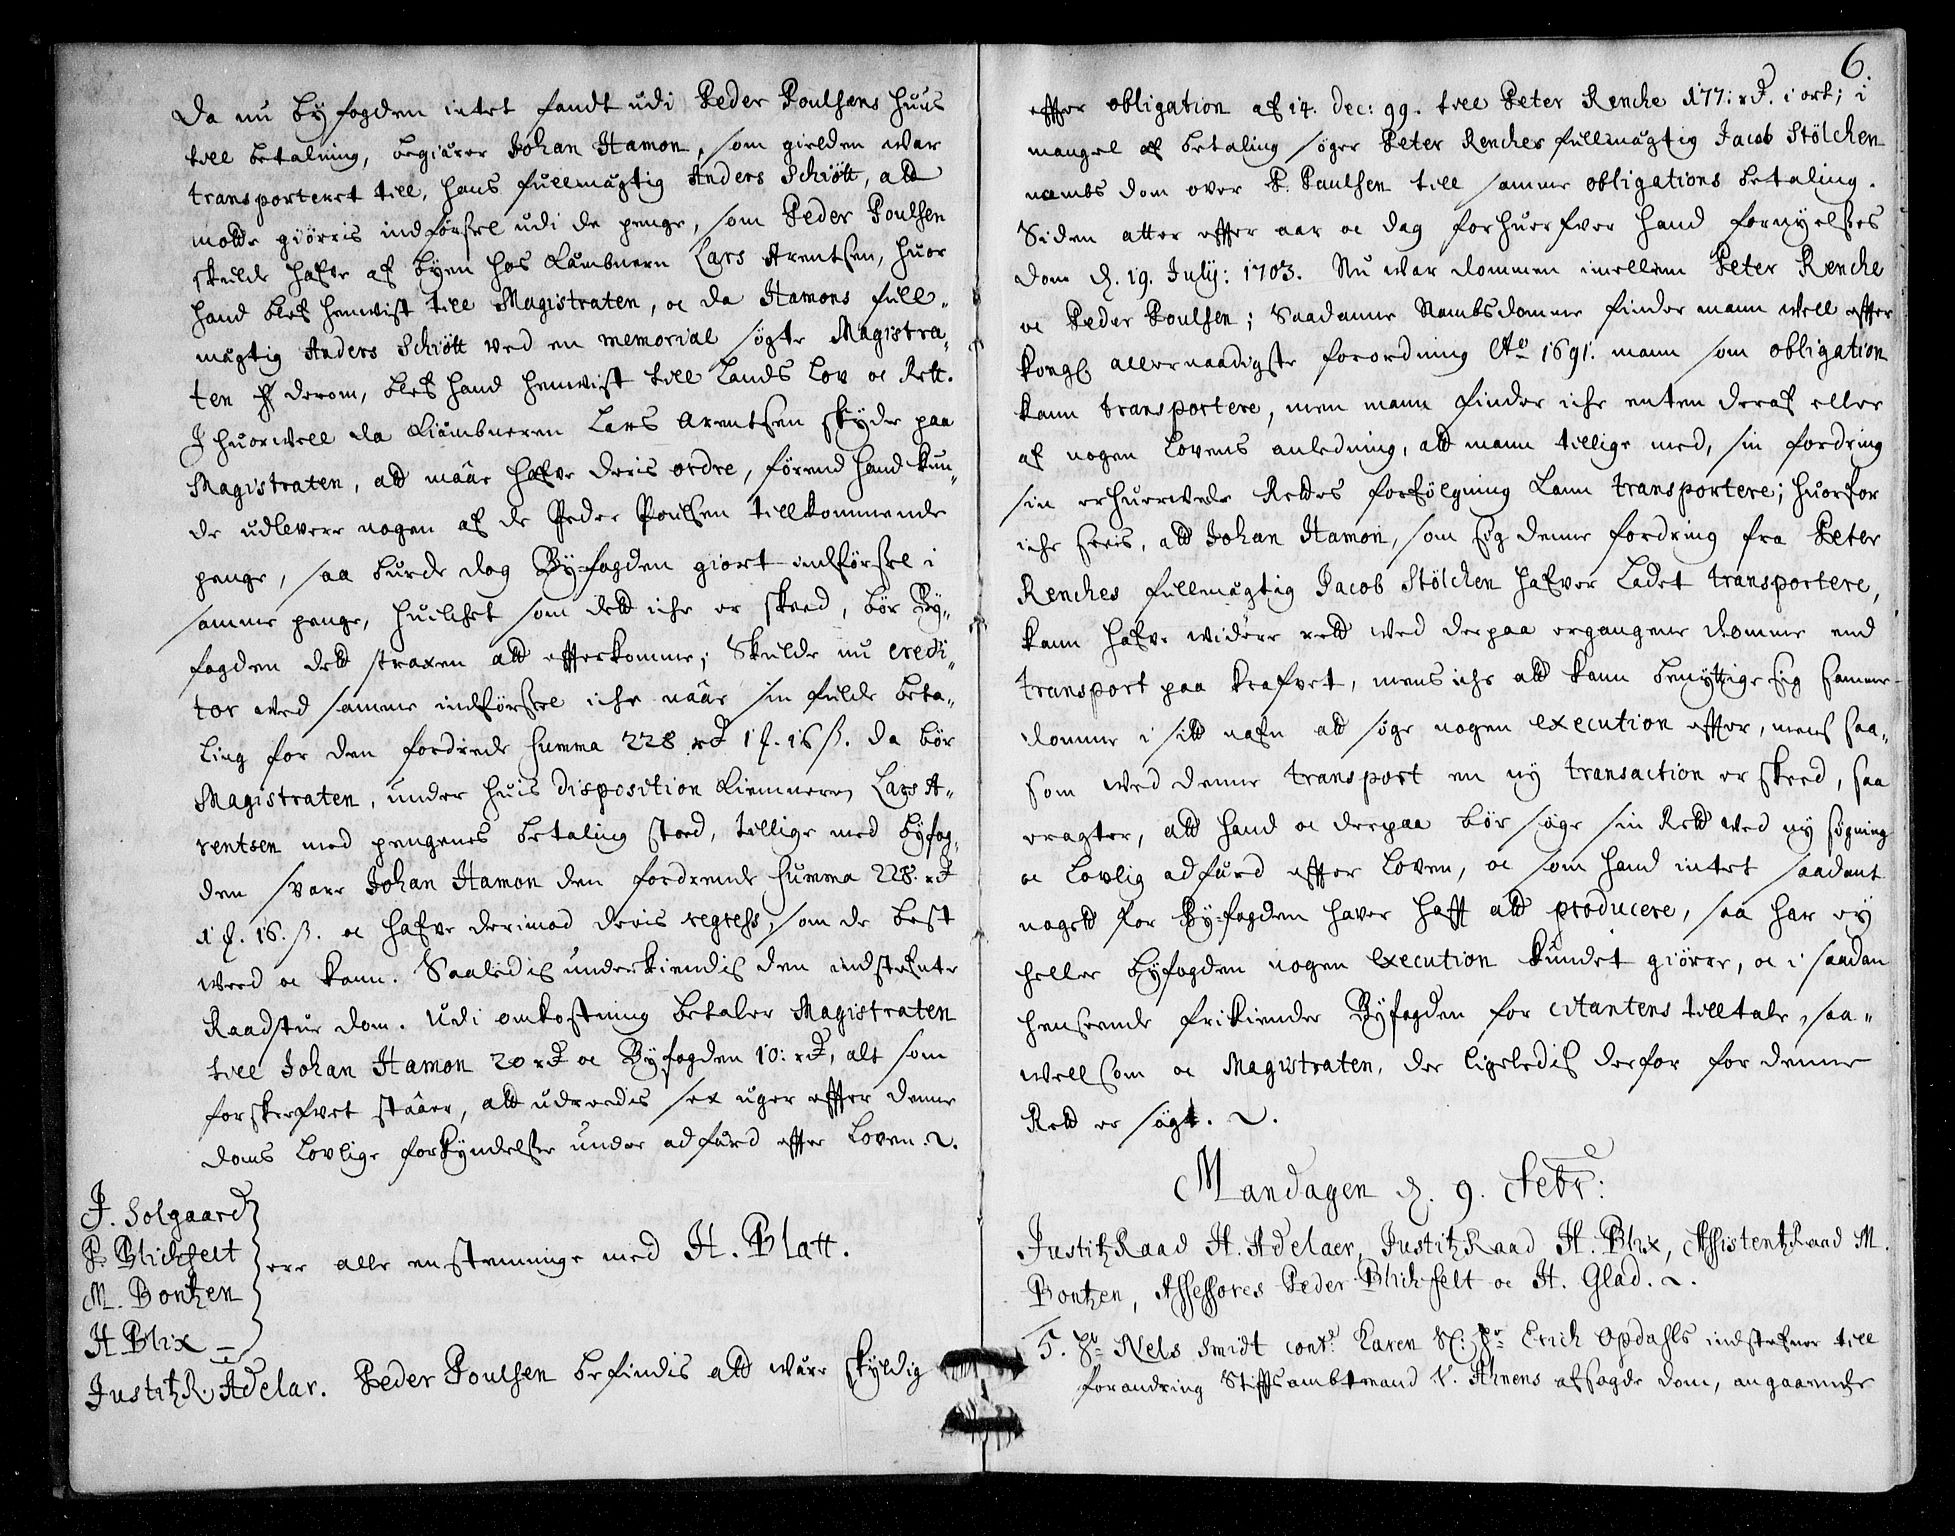 Da nu byfogden intet fandt udi Peder Poulsens huus
till betalning, begiärer Johan Hamon, som gielden war
transporteret till, hans fullmägtig Anders Schiött, att
motte giörris indförsel udi de penge, som Peder Poulsen
skulde hafve af byen hos Kämbnern Lars Arentsen, huor
hand blef henvist till Magistraten, oc da Hamons full„
mägtig Anders Schiött ved en memorial søgte Magistra„
ten derom, blef hand henvist till Lands Lov oc Rett.
Ihuorvell da Kiämbneren Lars Arentsen skyder paa
Magistraten, att mååe hafve deris ordre, førend hand kun„
de udlevere nogen af de Peder Poulsen tillkommende
penge, saa burde dog Byfogden giort indførsel i
samme penge, huilchet som dett iche er skeed, bör By„
fogden dett straxen att efterkomme; Skulde nu credi„
tor ved samme indførsel iche nååe sin fulde beta„
ling for den fordrede summa 228 rd 1 ort. 16 ß. da bör
Magistraten, under huis disposition Kiemneren Lars A„
rentsen med pengenes betaling stod, tillige med byfog„
den svare Johan Hamon den fordrende summa 228. rd
1 ort. 16. ß. oc hafve derimod deris regress, som de best
veed oc kann. Saaledis underkiendis den indstefnte
Raadstue dom. Udi omkostning betaler Magistraten
till Johan Hamon 20 rd oc Byfogden 10: rd, alt som
forskrefvet stååer, att udreedis sex uger effter denne
doms lovlige forkyndelse under adfärd effter Loven.
J. Solgaard
P. Blichfelt
M. Bontzen
H Blix
ere alle enstemmige med H. Blatt.
JustitzR. Adelar. Peder Poulsen befindis att være skyldig
6.
effter obligation af 14. Dec: 99. till Peter Renche 177: rd. 1 ort; i
mangel af betaling søger Peter Renches fullmägtig Jacob Stölchen
nambs dom over P. Paulsen till samme obligations betaling.
Siden atter effter aar oc dag forhuerfver hand fornyelses
dom d. 19. July: 1703. Nu war dommen imellem Peter Renche
oc Peder Poulsen; Saadanne Nambsdomme finder mann well effter
kongl allernaadigste forordning Ao 1691. mann som obligation
kann transportere, men mann finder iche enten deraf eller
af nogen Lovens anledning, att mann tillige med, sin fordring
sin erhuervede Rettes forfølgning kann transportere; huorfor
iche sees, att Johan Hamon, som sig denne fordring fra Peter
Renches fullmägtig Jacob Stölchen hafver ladet transportere,
kann hafve widere rett wed derpaa ergangene domme end
transport paa krafvet, mens iche att kann benyttige sig samme
domme i sitt nafn att søge nogen execution effter, mens saa„
som wed denne transport en ny transaction er skeed, saa
eragter, att hand oc derpaa bör søge sin Rett ved ny søgning
oc lovlig adfärd effter Loven, oc som hand intet saadant
nogett for Byfogden haver hafft att producere, saa har ey
heller byfogden nogen execution kundet giörer, oc i saadan
henseende frikiender Byfogden for citantens tilltale, saa„
well som oc Magistraten, der ligeledis derfor for denne
Rett er søgt.
Mandagen d. 9. Febr:
JustitzRaad H. Adelaer, JustitzRaad H. Blix, AssistentzRaad M.
Bontzen, Assessores Peder Blichfelt oc H. Glad.
5. Hr Nels Smidt contr. Karen Sl: Hr Erich Opdahls indstefner till
forandring Stiftsambtmand v. Ahnens afsagde dom, angaaende